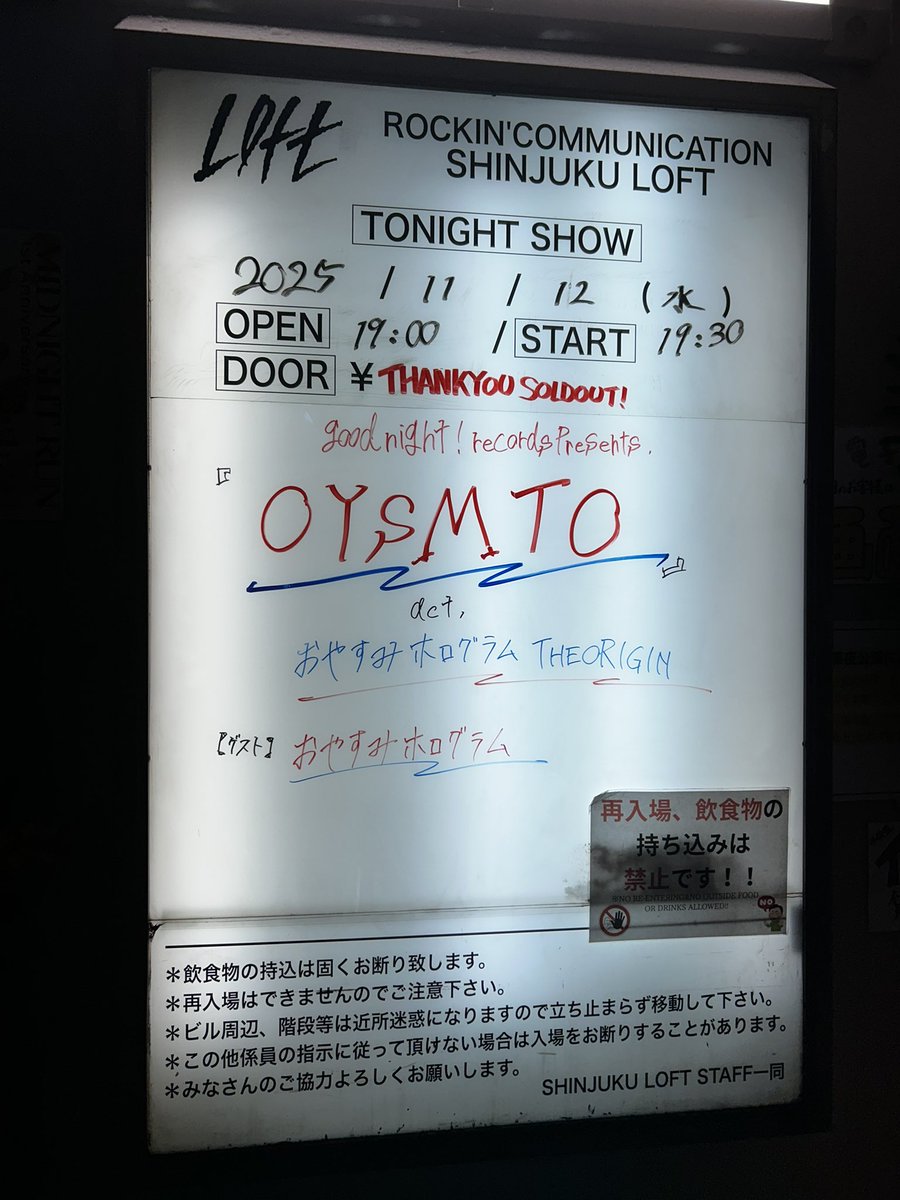 LOFT
ROCKIN'COMMUNICATION
SHINJUKU LOFT
TONIGHT SHOW
2025 / 11 / 12 (水)
OPEN 19:00 / START 19:30
DOOR ¥ THANKYOU SOLDOUT!
good night! records Presents.
『OYSMTO』
act,
おやすみホログラム THEORIGIN
【ゲスト】 おやすみホログラム
再入場、飲食物の
持ち込みは
禁止です!!
※NO RE-ENTERING AND OUTSIDE FOOD
OR DRINKS ALLOWED!!
NO
＊飲食物の持込は固くお断り致します。
＊再入場はできませんのでご注意下さい。
＊ビル周辺、階段等は近所迷惑になりますので立ち止まらず移動して下さい。
＊この他係員の指示に従って頂けない場合は入場をお断りすることがあります。
＊みなさんのご協力よろしくお願いします。
SHINJUKU LOFT STAFF一同
MIDNIGHT RUN